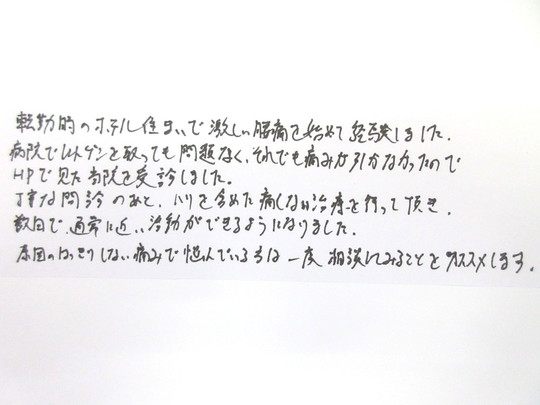 転勤的のホテル住まいで激しい腰痛を始めて経験しました。
病院でレントゲンを取っても問題なく、それでも痛みが引かなかったので
HPで見た当院を受診しました。
丁寧な問診のあと、ハリを含めた痛くない治療を行って頂き、
数日で、通常に近い活動ができるようになりました。
原因のはっきりしない痛みで悩んでいる方は一度相談してみることをオススメします。